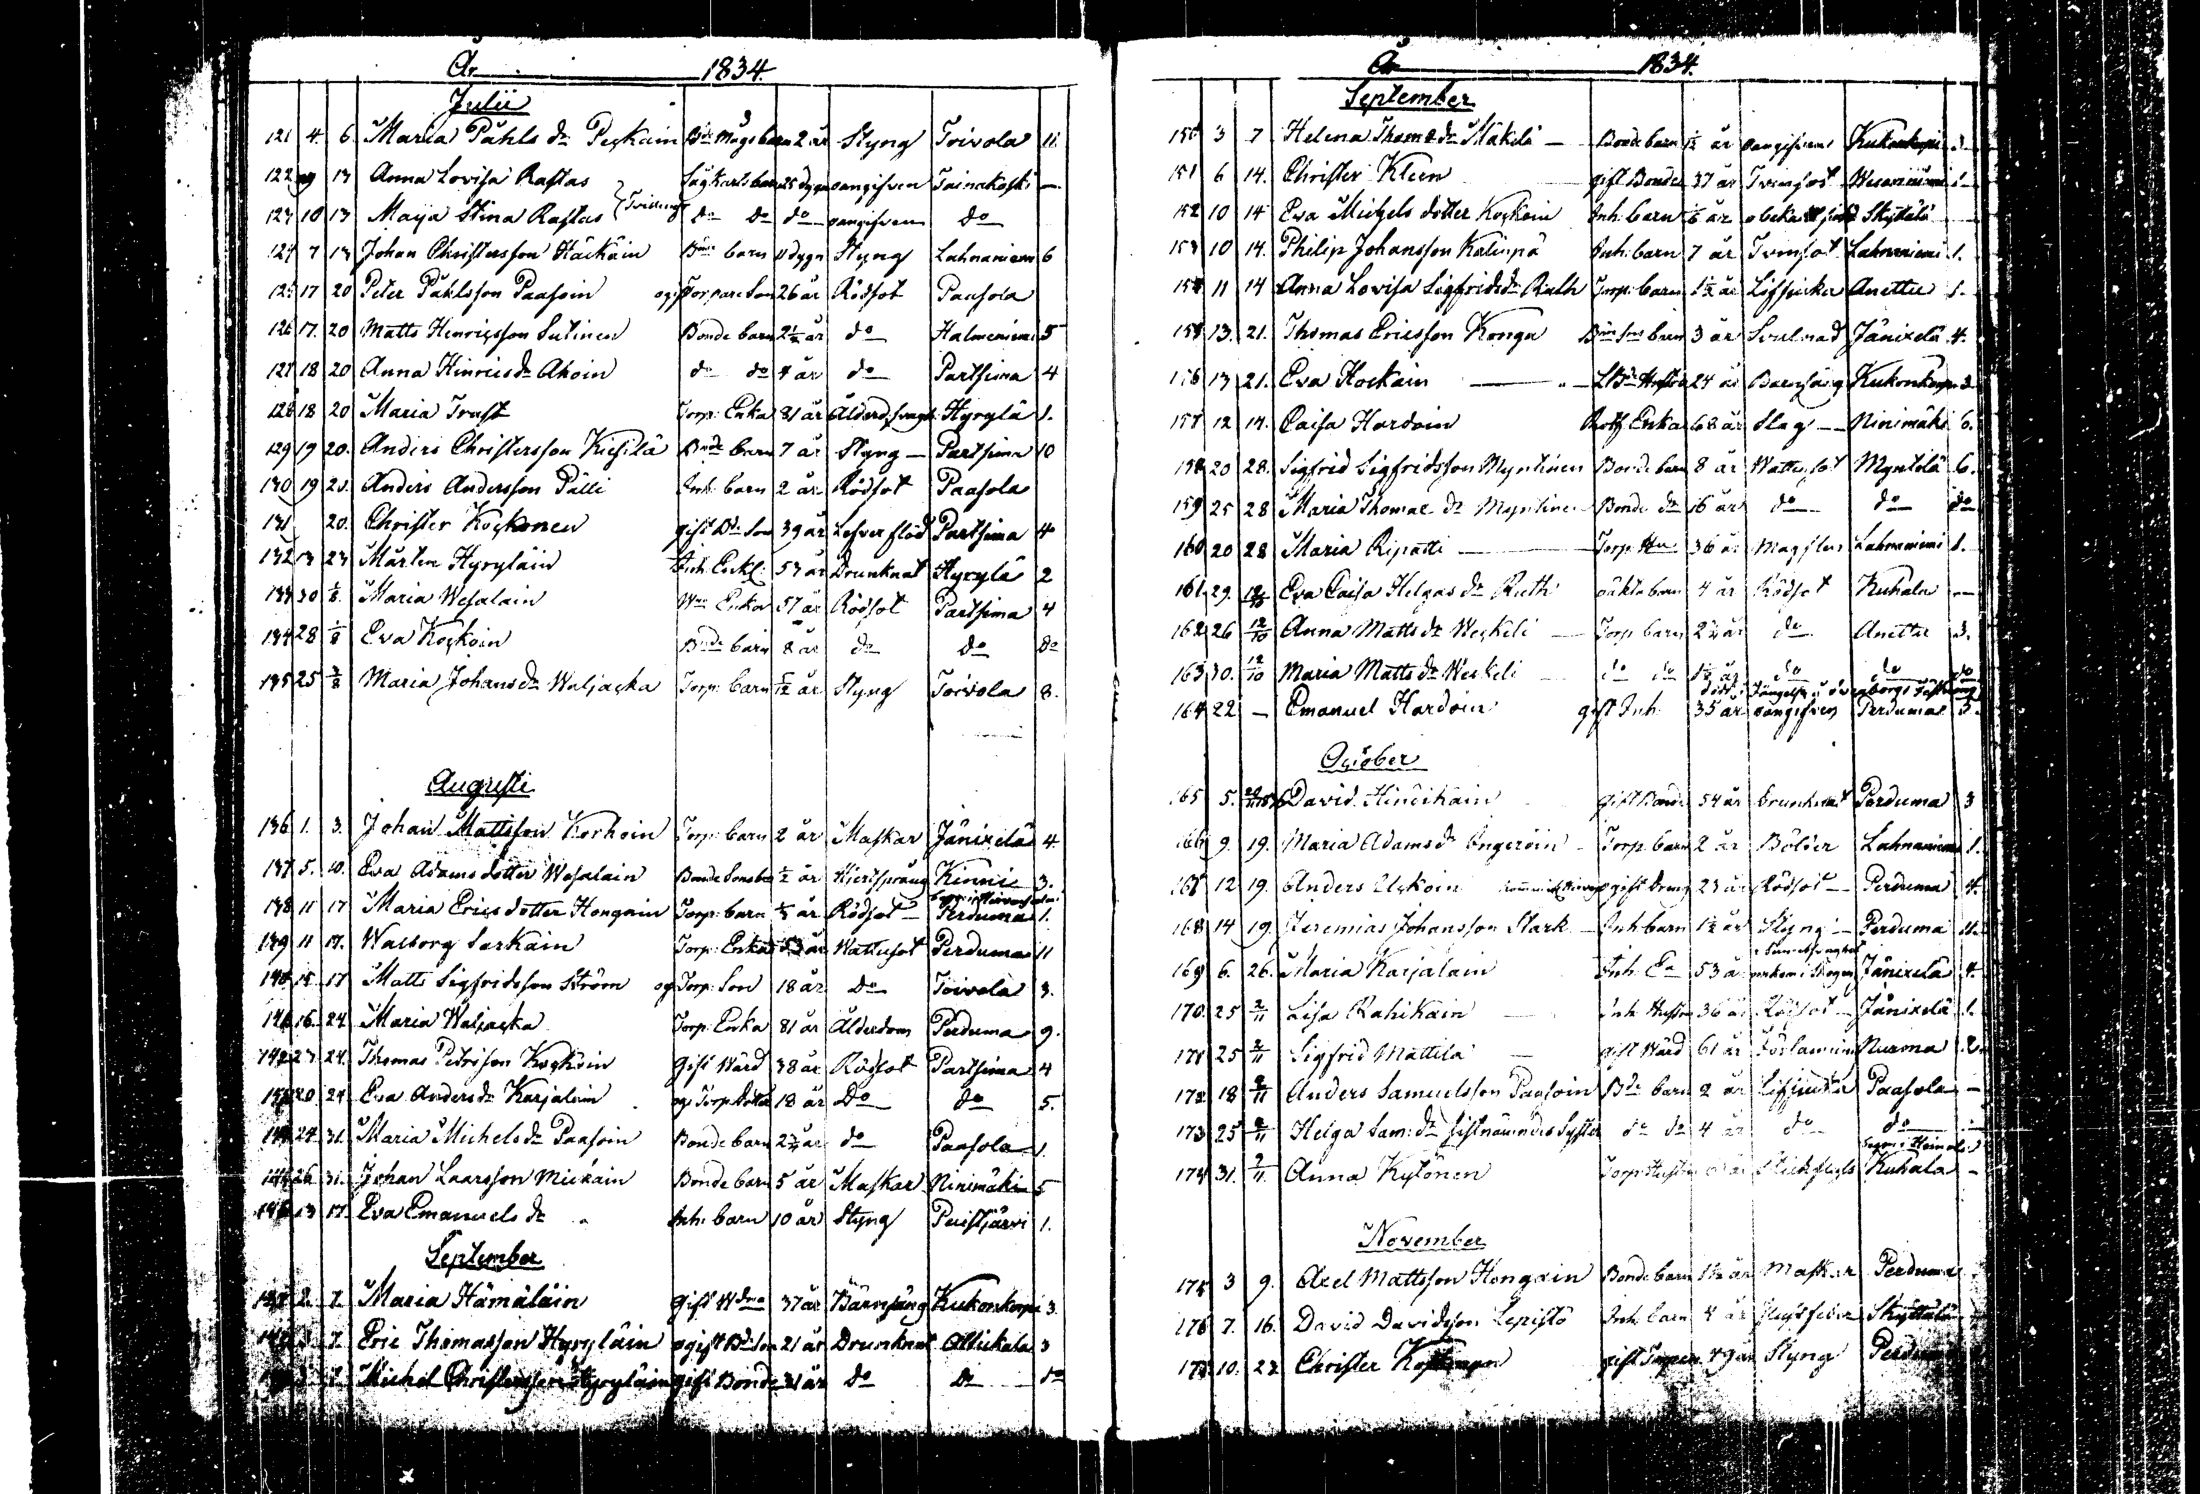 År 1834.
Julii
121 4. 6. Maria Påhls dr Peskain Bde Mågs barn 2 år Styng Toivola 11.
122 9 13 Anna Lovisa Rastas Sågkarls barn 25 dygn oangifven Tainakoski —
123 10 13 Maija Stina Rastas } Tvillingar do do do oangifven do
124 7 13 Johan Christersson Häckäin Bde barn 11 dygn Styng Lahnaniemi 6
125 17 20 Peter Påhlsson Paasoin ogift Torpare Son 26 år Rödsot Paasola
126 17. 20 Matts Henricsson Sutinen Bonde barn 2½ år do Halmeniemi 5
127 18 20 Anna Hinrics dr Ahoin do do 4 år do Partsima 4
128 18 20 Maria Trast Torp: Enka 81 år Ålderd. svagh. Hyrylä 1.
129 19 20. Anders Christersson Kiesilä Bonde barn 7 år Styng — Partsima 10
130 19 20. Anders Andersson Pälli Inh: barn 2 år Rödsot Paasola
131 20. Christer Koskonen gift Bde Son 39 år Lefverflöd Partsima 4
132 13 23 Mårten Hyryläin Inh. Enkl: 53 år Drunknat Hyrylä 2
133 30 1/8. Maria Wesalain Enka 57 år Rödsot Partsima 4
134 28 1/8 Eva Koskoin Bonde barn 8 år do do do
135 25 3/8 Maria Johans dr Waljacka Torp: barn 5/12 år Styng Toivola 8.
Augusti
136 1. 3. Johan Mattsson Korhoin Torp: barn 2 år Masskar Jänixelä 4
137 5. 10. Eva Adams dotter Wesalain Bonde Sons barn ½ år Hjertsprång Kinnie 3.
138 11 17 Maria Erics dotter Hongain Torp: barn år Rödsot — Perduma 1.
139 11 17. Walborg Sarkäin Torp: Enka 53 år Wattusot Perduma 11
140 15 17 Matts Sigfridsson Ström og Torp: Son 18 år Do Toivola 3.
141 16. 24. Maria Waljacka Torp: Enka 81 år Ålderdom Perduma 9.
142 23 24. Thomas Petersson Koskoin Gift Wärd 38 år Rödsot Partsima 4
143 20 24 Eva Anders dr Karjalain og: Torp: Dotter 18 år Do do 5.
144 24 31. Maria Michels dr Paasoin Bonde barn 2¾ år do Paasola 1.
145 26 31. Johan Laarsson Mickäin Bonde barn 5 år Masskar Ninimäki 5
146 13 17. Eva Emanuels dr Inh: barn 10 år Styng Puistjärvi 1.
September
147 2. 7. Maria Hämäläin Gift Wdna 37 år Barnsäng Kukonkorpi 3.
148 3. 7. Eric Thomasson Hyryläin ogift Bde Son 21 år Drunknat Allikala 3
7. Michel Christersson Hyryläin gift Bonde 31 år do do do
År 1834.
September
150 3 7 Helena Thome dr Mäkelä — Bonde barn ½ år oangifven Kukonkorpi 3
151 6 14. Christer Kleen gift Bonde 37 år Tvinsot 1
152 10 14 Eva Michels dotter Koskoin Inh: barn år obekant sjukd Skyttälä
153 10 14. Philip Johansson Kalippa Inh: barn 7 år Tvinsot Lahnaniemi 1.
154 11 14 Anna Lovisa Sigfrids dr Ruth Torp: barn 1½ år Lifsjuka Anettu 1.
155 13. 21. Thomas Ericsson Konga Bde Sons barn 3 år Svulnad Jänixelä 4.
156 13 21. Eva Hockäin — Hustru 24 år Barnsäng Kukonkorpi 3
157 12 14. Caisa Hardoin Rotf Enka 68 år Slag — Ninimäki 6.
158 20 28. Sigfrid Sigfridsson Myntinen Bonde barn 8 år Wattusot Myntilä 6.
159 25 28 Maria Thomae dr Myntinen Bonde dr 16 år do do do
160 20 28 Maria Ripatti — Torp. 36 år Lahnaniemi 1.
161 29. 12/10 Eva Caisa Helgas dr Ruth oäkta barn 4 år Rödsot Kuhala —
162 26 12/10 Anna Matts dr Weskeli — Torp barn 2¼ år do Anettu 3.
163 30. 12/10 Maria Matts dr Weskeli do do år do do do
164 22 — Emanuel Hardoin gift Inh: 35 år oangifven Perduma 5.
October
165 5. David Hinckäin gift Bonde 54 år drunknat Perduma 3
166 9. 19. Maria Adams dr Ingeroin — Torp barn 2 år Bölder Lahnaniemi 1.
167 12 19. Anders Uskoin ogift Dreng 23 år Rödsot — Perduma 4.
168 14 19. Jeremias Johansson Stark — Inh barn 1½ år Styng — Perduma 11.
169 6. 26. Maria Karjalain Inh: Ea 53 år Jänixelä 4
170. 25 2/11 Lisa Rahikain — Inh Hustru 36 år Rödsot — Jänixelä 1.
171 25 2/11 Sigfrid Mattila — gift Wärd 61 år Förlamning Nurma 2.
172 18 2/11 Anders Samuelsson Paasoin Bde barn 2 år Lifsjuka Paasola —
173 25 2/11 Helga Sam: dr sistnämndes Syster do do 4 år do do
174 31. 2/11. Anna Kytönen Torp: Hustru år Kuhala —
November
175 3 9. Axel Mattsson Hongain Bonde barn 1½ år Masskar Perduma
176 7. 16. David Davidsson Lepistö Inh: barn 4 år Skyttälä
177 10. 23 Christer gift 49 år Styng Perduma